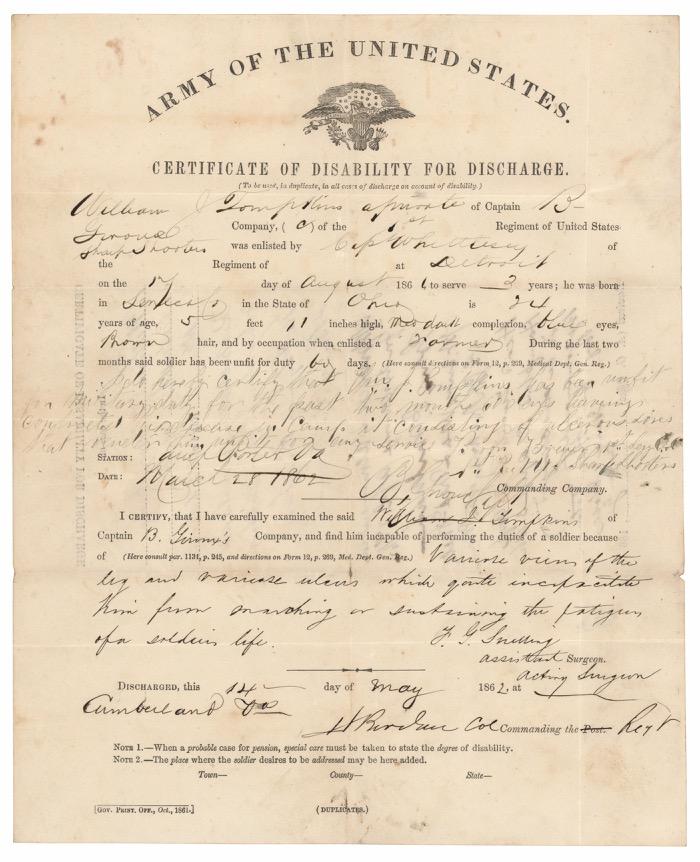 ARMY OF THE UNITED STATES.
CERTIFICATE OF DISABILITY FOR DISCHARGE.
(To be used, in duplicate, in all cases of discharge on account of disability.)
William J Tompkins a private of Captain B-
Company, (C) of the 1st Regiment of United States
Sharp Shooters was enlisted by of
the Regiment of at Detroit
on the 17 day of August 1861 to serve 3 years; he was born
in Seneca Co in the State of Ohio is 24
years of age, 5 feet 11 inches high, complexion, blue eyes,
Brown hair, and by occupation when enlisted a Farmer During the last two
months said soldier has been unfit for duty 60 days. (Here consult directions on Form 12, p. 269, Medical Dept. Gen. Reg.)
I do hereby certify that Wm J. Tompkins has been unfit
for military duty for the past two months
disease in camp consisting of ulcerous sores
that him unfit for any service
STATION:
Sharpshooters
DATE: March 28 1862
Commanding Company.
I CERTIFY, that I have carefully examined the said William J. Tompkins of
Captain B. Company, and find him incapable of performing the duties of a soldier because
of (Here consult par. 1134, p. 245, and directions on Form 12, p. 269, Med. Dept. Gen. Reg.) Varicose viens of the
leg and varicose ulcers which quite incapacitate
him from marching or sustaining the fatigues
of a soldiers life.
F. G. Snelling
assistant Surgeon.
acting Surgeon
DISCHARGED, this 14- day of May 1862, at
Cumberland Va
Col Commanding the Post. Regt
NOTE 1.—When a probable case for pension, special care must be taken to state the degree of disability.
NOTE 2.—The place where the soldier desires to be addressed may be here added.
Town— County— State—
[GOV. PRINT. OFF., Oct., 1861.] (DUPLICATES.)